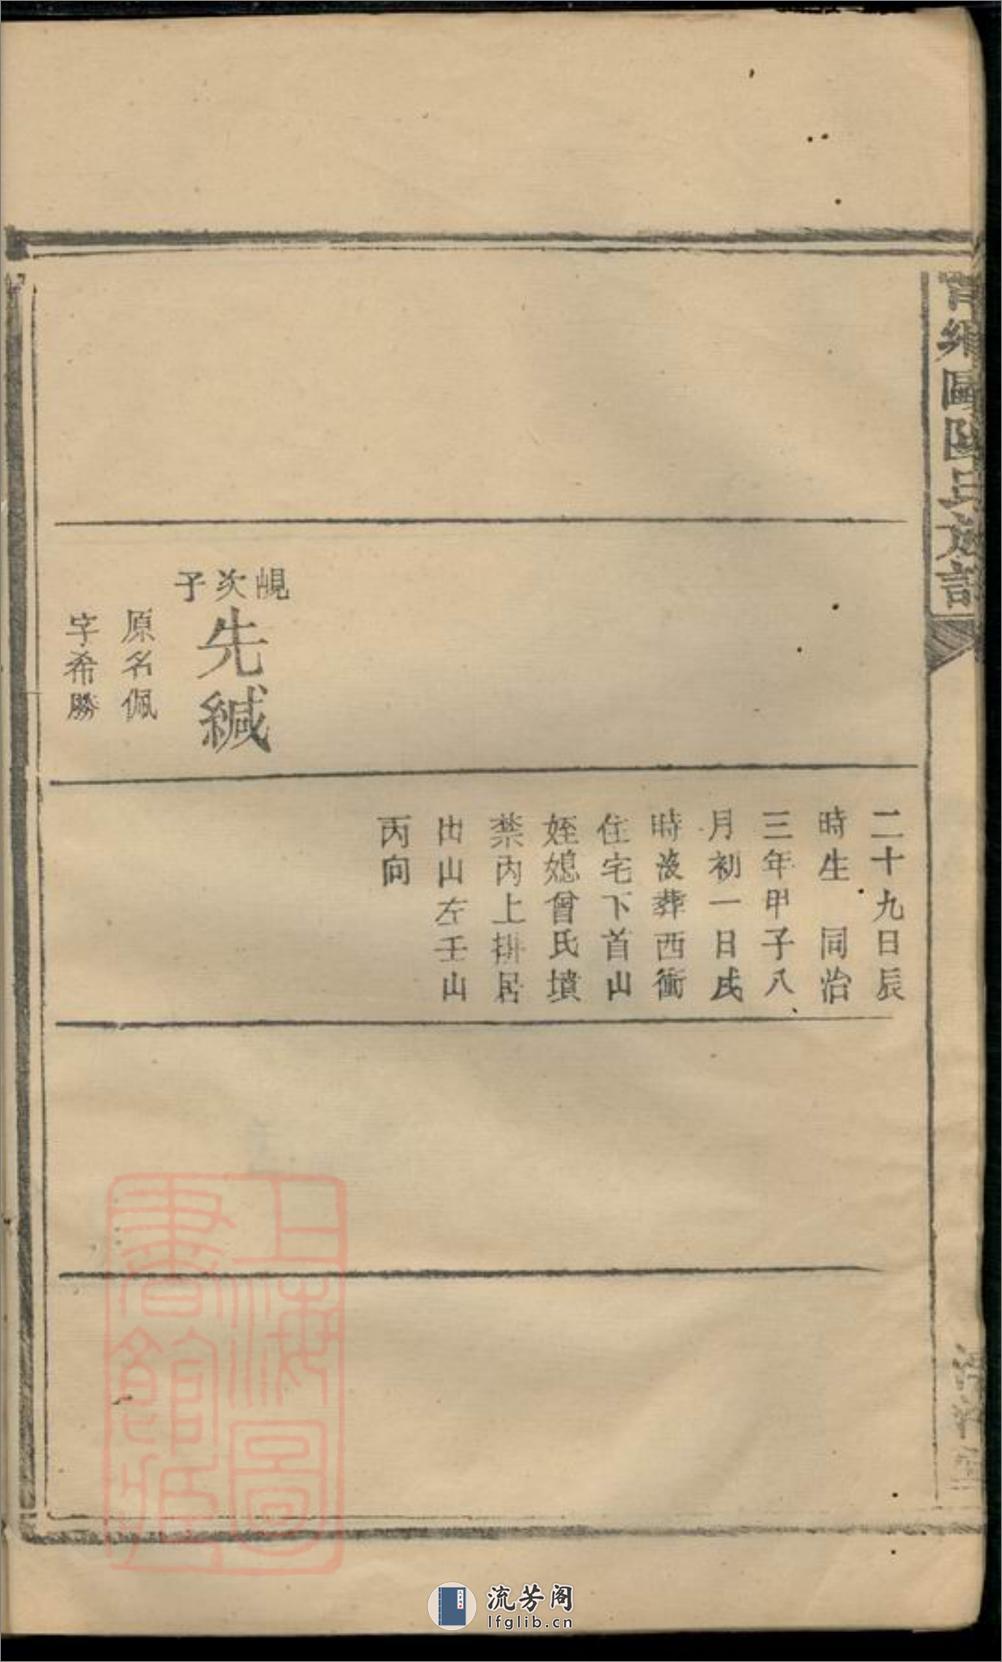 歐陽氏族譜
二十九日辰
時生　同治
三年甲子八
月初一日戌
時没葬西衝
住宅下首山
姪媳曾氏墳
禁内上排居
出山左壬山
丙向
覘次子
先緘
原名佩
字希勝
上海圖
書館藏
流芳阁
lfglib.cn